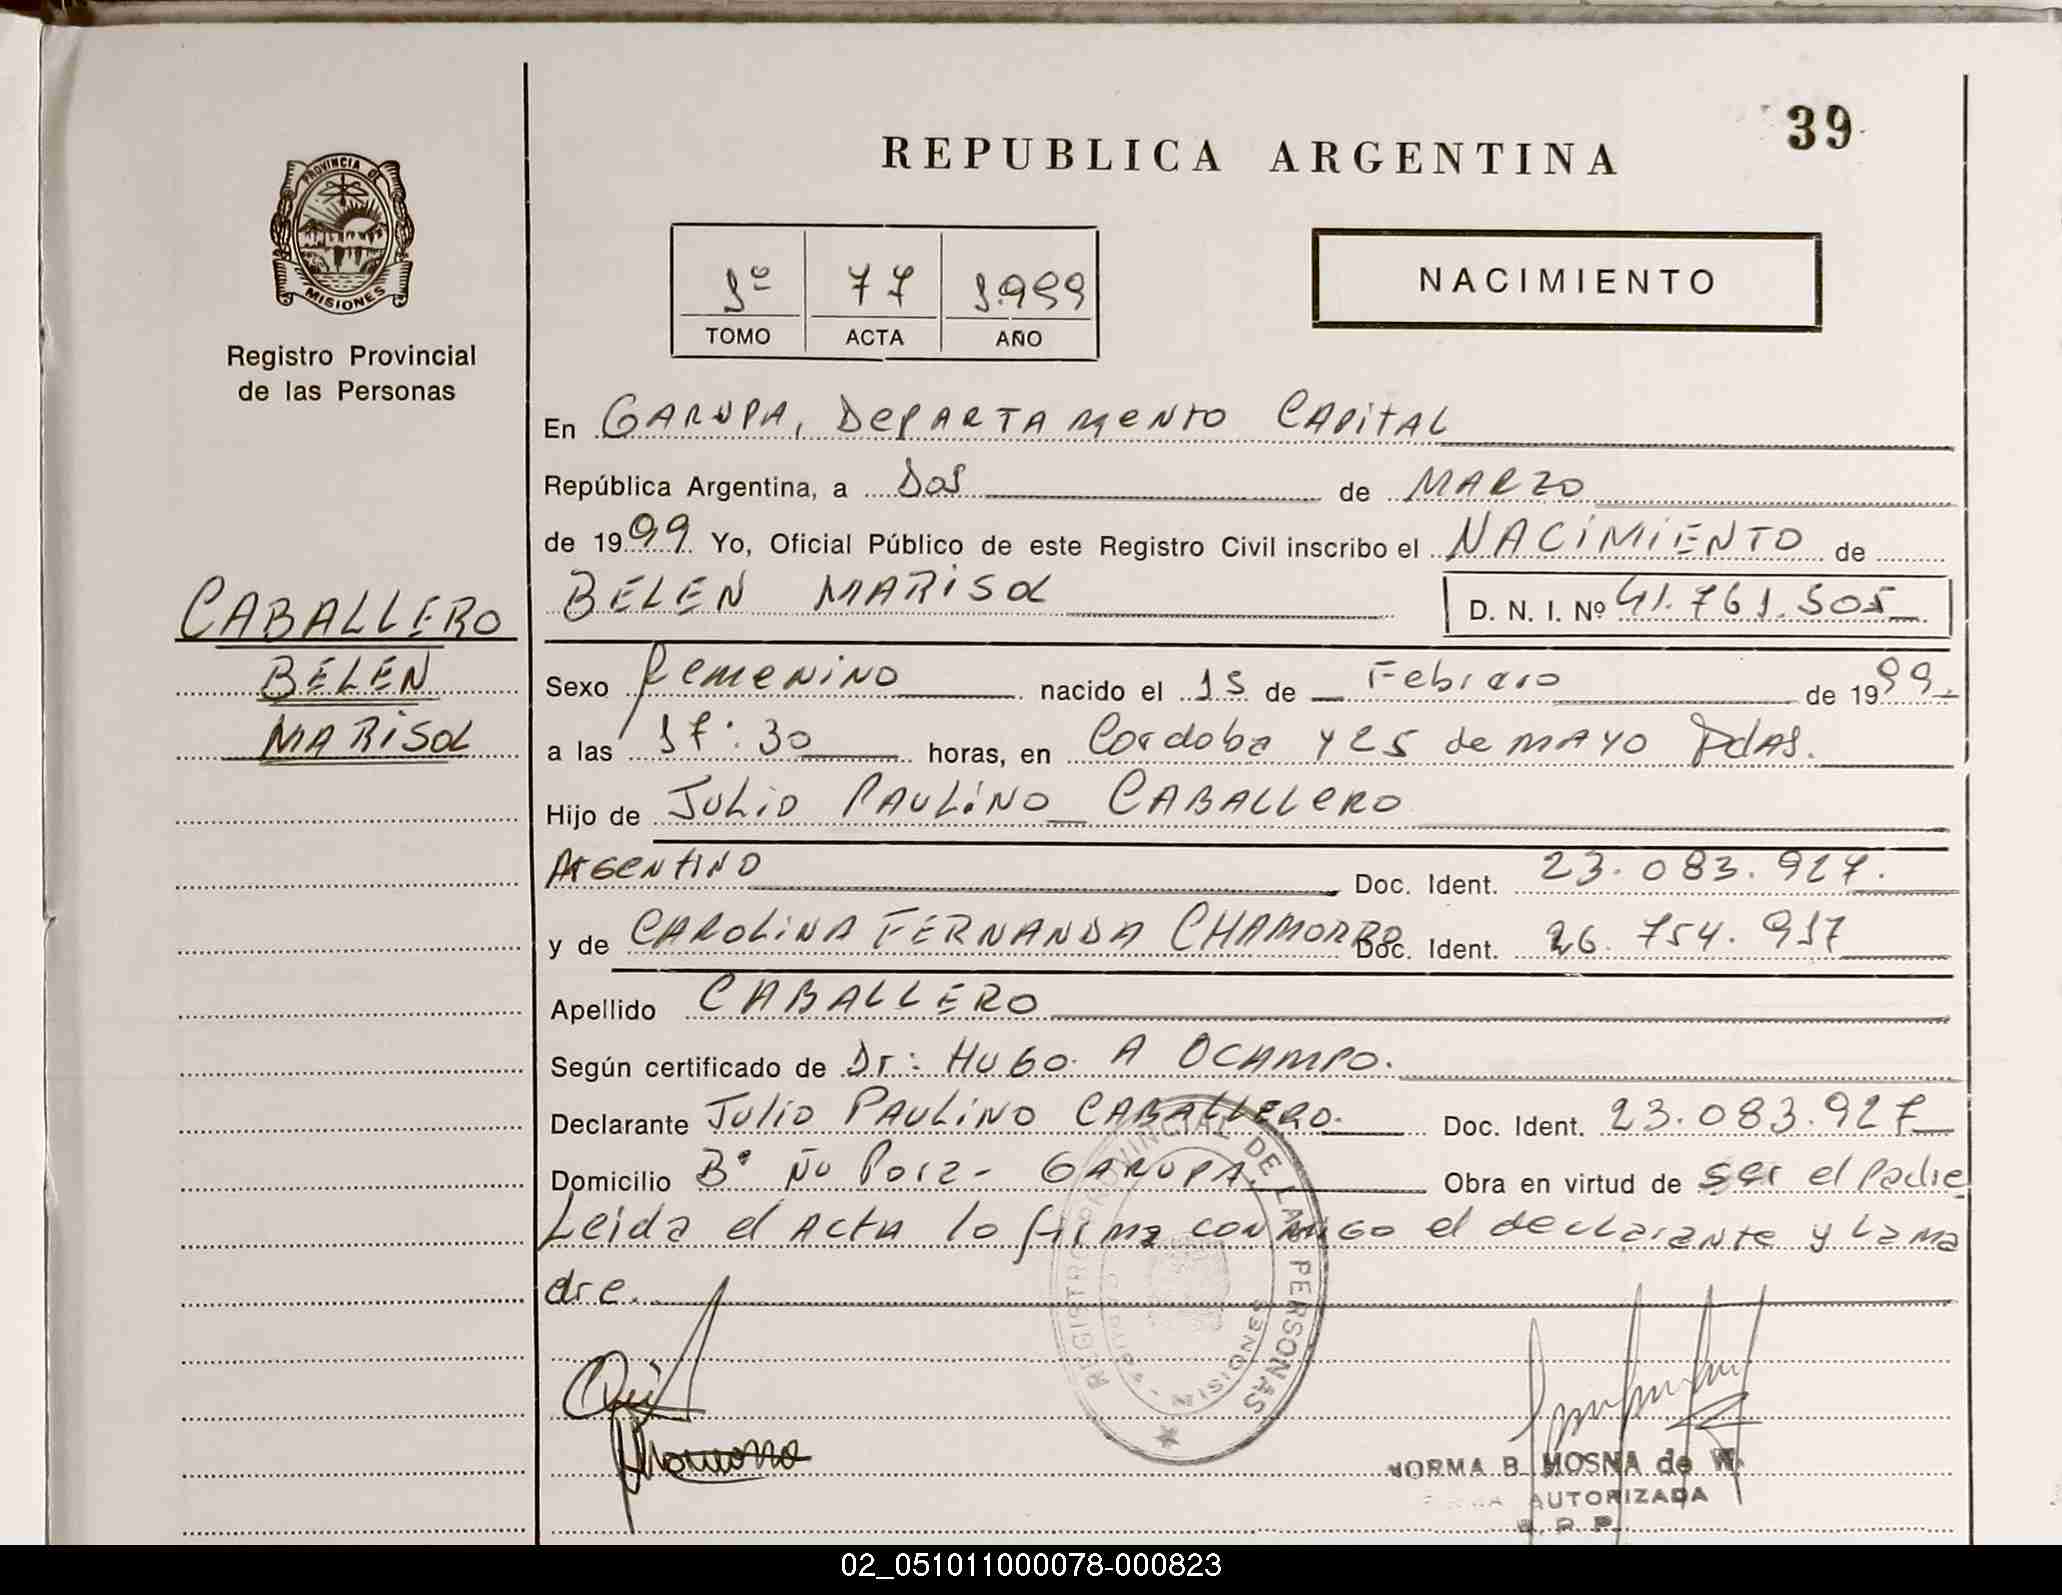 39
REPUBLICA ARGENTINA
PROVINCIA DE
MISIONES
Registro Provincial
de las Personas
1º 77 1.999
TOMO ACTA AÑO
NACIMIENTO
En GARUPA, DEPARTAMENTO CAPITAL
República Argentina, a Dos de MARZO
de 1999 Yo, Oficial Público de este Registro Civil inscribo el NACIMIENTO de
CABALLERO
BELEN
MARISOL
BELEN MARISOL D. N. I. Nº 41.761.505
Sexo Femenino nacido el 15 de Febrero de 1999.
a las 17:30 horas, en Cordoba y 25 de MAYO Pdas.
Hijo de JULIO PAULINO CABALLERO
ARGENTINO Doc. Ident. 23.083.927.
y de CAROLINA FERNANDA CHAMORRO Doc. Ident. 26.754.917
Apellido CABALLERO
Según certificado de Dr: HUGO A OCAMPO.
Declarante JULIO PAULINO CABALLERO. Doc. Ident. 23.083.927
Domicilio Bº ÑU PORA- GARUPA. Obra en virtud de ser el Padre
Leida el ACTA lo firma conmigo el declarante y la ma
dre.
REGISTRO PROVINCIAL DE LAS PERSONAS
MISIONES
NORMA B. MOSNA de W.
FIRMA AUTORIZADA
R. P. P.
02_051011000078-000823